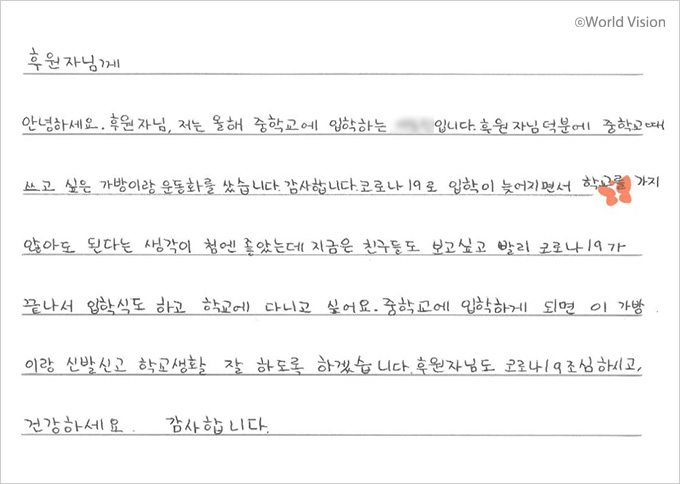 ©World Vision
후원자님께
안녕하세요. 후원자님, 저는 올해 중학교에 입학하는 입니다. 후원자님 덕분에 중학교때
쓰고 싶은 가방이랑 운동화를 샀습니다. 감사합니다. 코로나 19로 입학이 늦어지면서 학교를 가지
않아도 된다는 생각이 첨엔 좋았는데 지금은 친구들도 보고싶고 빨리 코로나19가
끝나서 입학식도 하고 학교에 다니고 싶어요. 중학교에 입학하게 되면 이 가방
이랑 신발신고 학교생활 잘 하도록 하겠습니다. 후원자님도 코로나19 조심하시고,
건강하세요. 감사합니다.